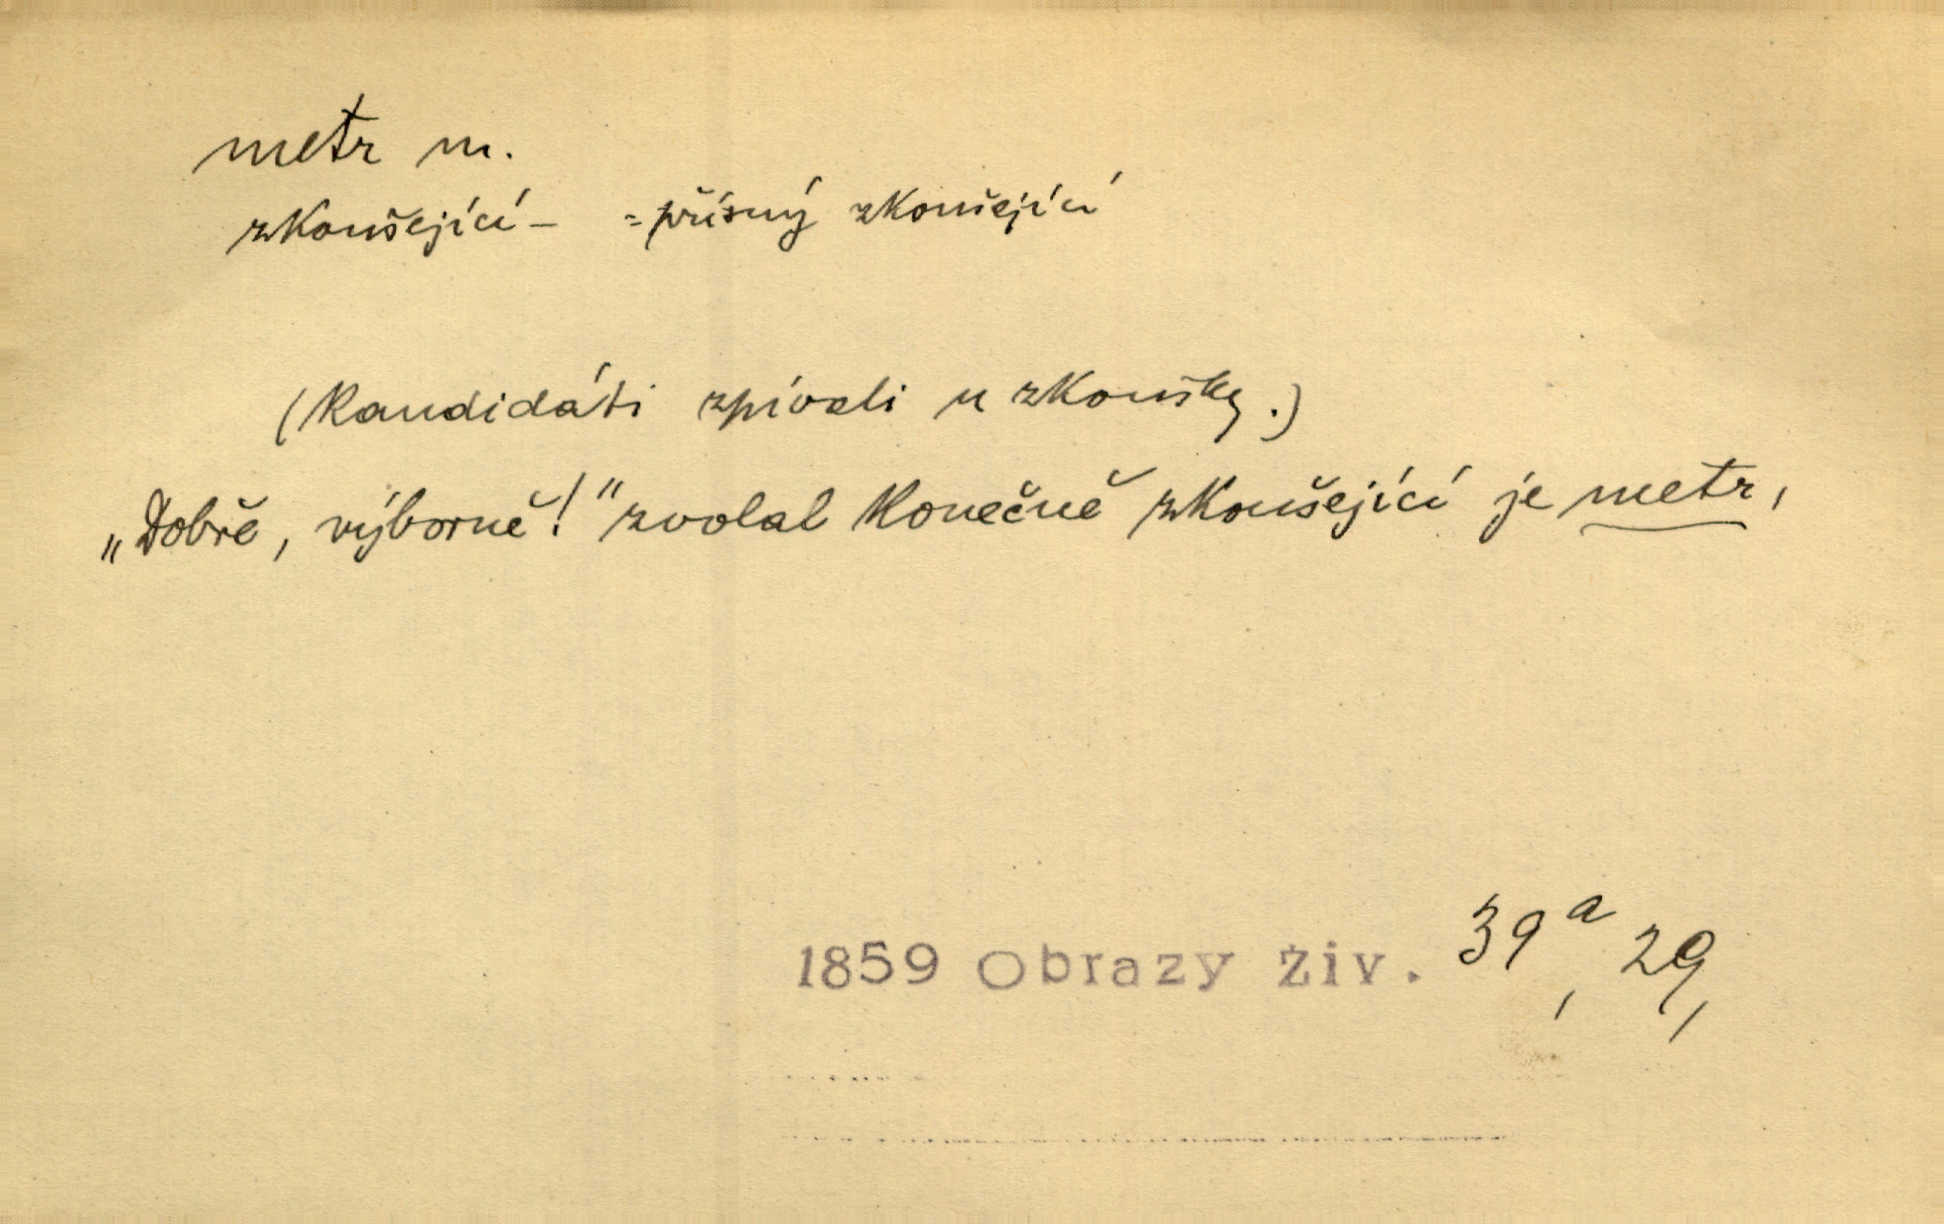 metr m.
zkoušející – = přísný zkoušející
(Kandidáti zpívali u zkoušky.)
„Dobře, výborně!“ zvolal konečně zkoušející je metr,
1859 Obrazy živ. 39, a 29,